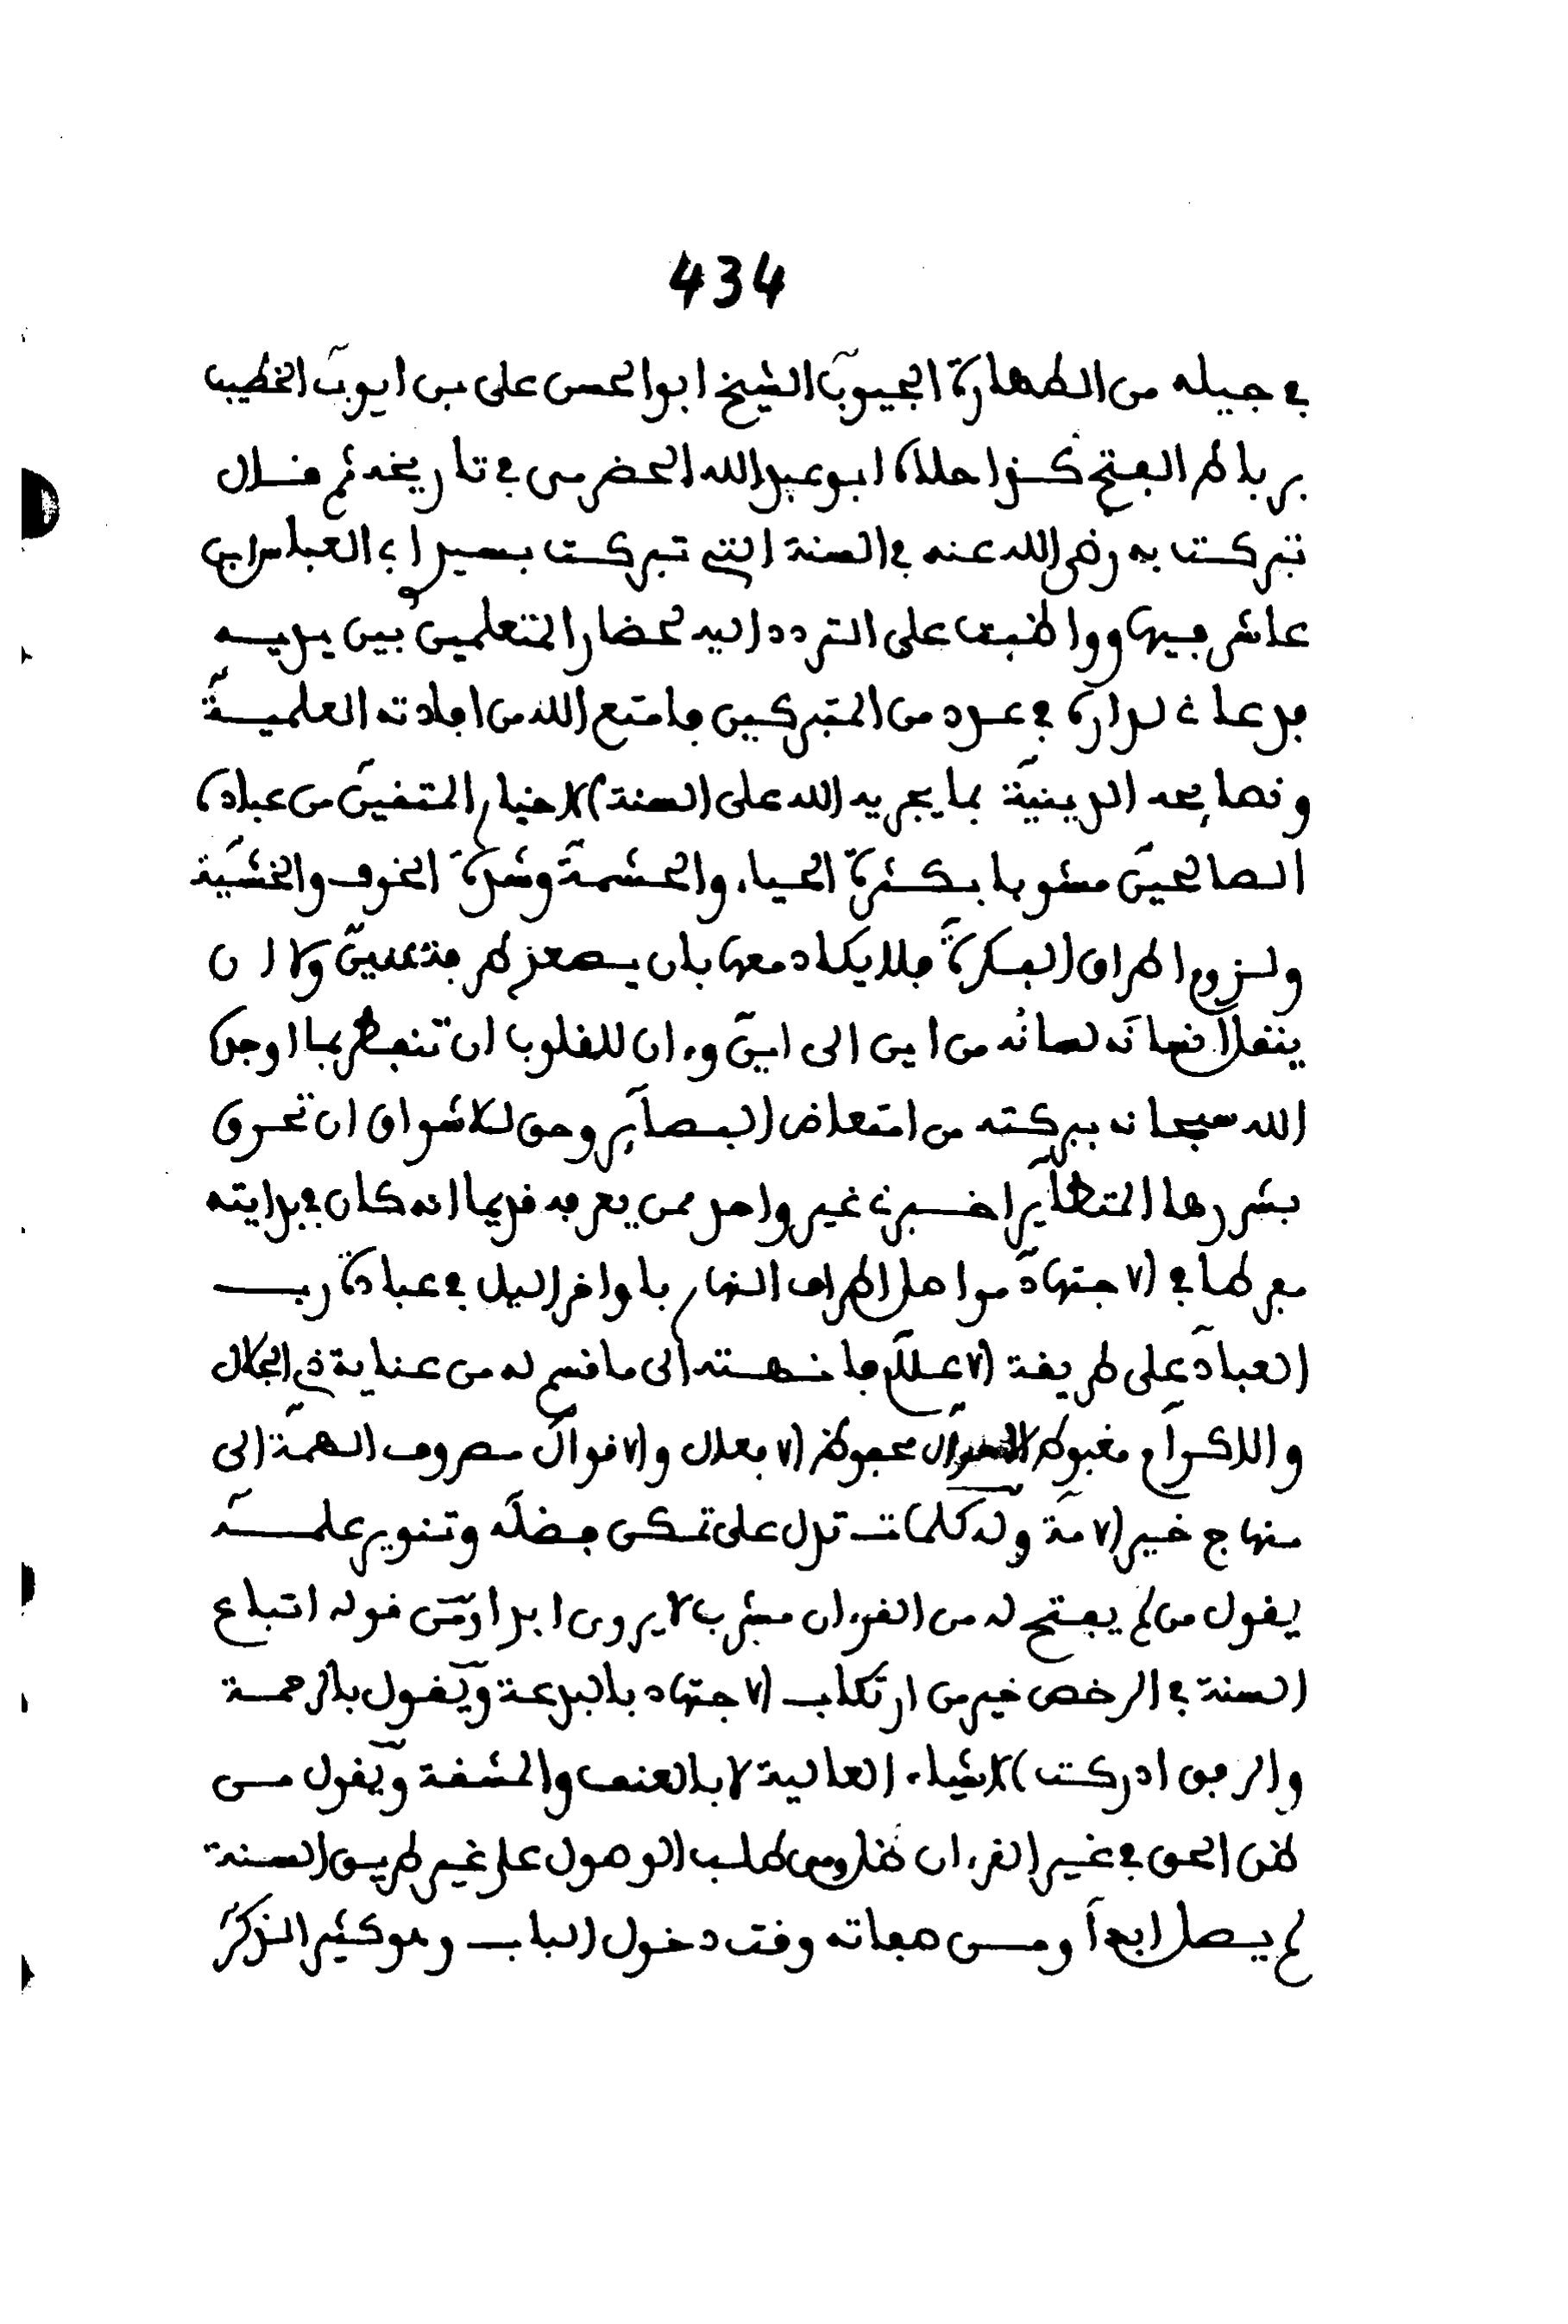 434
في جيله من الطهارة الجيوب الشيخ ابو الحسن علي بن ايوب الخطيب
برباط الفتح كذا حلاه ابو عبد الله الحضرمي في تاريخه ثم قال
تبركت به رضي الله عنه في السنة التي تبركت بسيد ابي العباس ابن
عاشر فيها وواظبت على التردد اليه لحضار المتعلمين بين يديه
فدعاني لداره في عدد من المتبركين فامتع الله من افادته العلمية
ونصايحه الدينية بما يجريه الله على السنة الاخيار المتقين من عباده
الصالحين مشوبا بكثرة الحياء والحشمة وشدة الخوف والخشية
ولزوم اطراق الفكرة فلا يكاد معها بان يسمعز لهم فتعيين ولا ان
ينقلا لسانه من اين الى اين وءان للقلوب ان تنفطر بما اوجده
الله سبحانه ببركته من امتعاض البصاير وحق للاشواق ان تحرق
بشررها المتطاير اخبرني غير واحد ممن يعرفه قديما انه كان في بدايته
مفرطا في الاجتهاد مواصل اطراف النهار باواخر اليل في عبادة رب
العباد على طريقة الاعلام فانهته الى ما قسم له من عناية ذي الجلال
والاكرام مغبوط الاحوال محفوظ الافعال والاقوال مصروف الهمة الى
منهاج خير الامة وله كلمات تدل على تمكن فضله وتنوير علمه
يقول من لم يفتح له من القرءان مشرب لا يروى ابدا ومن قوله اتباع
السنة في الرخص خير من ارتكاب الاجتهاد بالبدعة ويقول بالرحمة
والرفق ادركت الاشياء العالية لا بالعنف والمشقة ويقول من
ظن الحق في غير القرءان ضل ومن طلب الوصول على غير طريق السنة
لم يصل ابدا ومن صفاته وقت دخول الباب وهو كثير الذكر